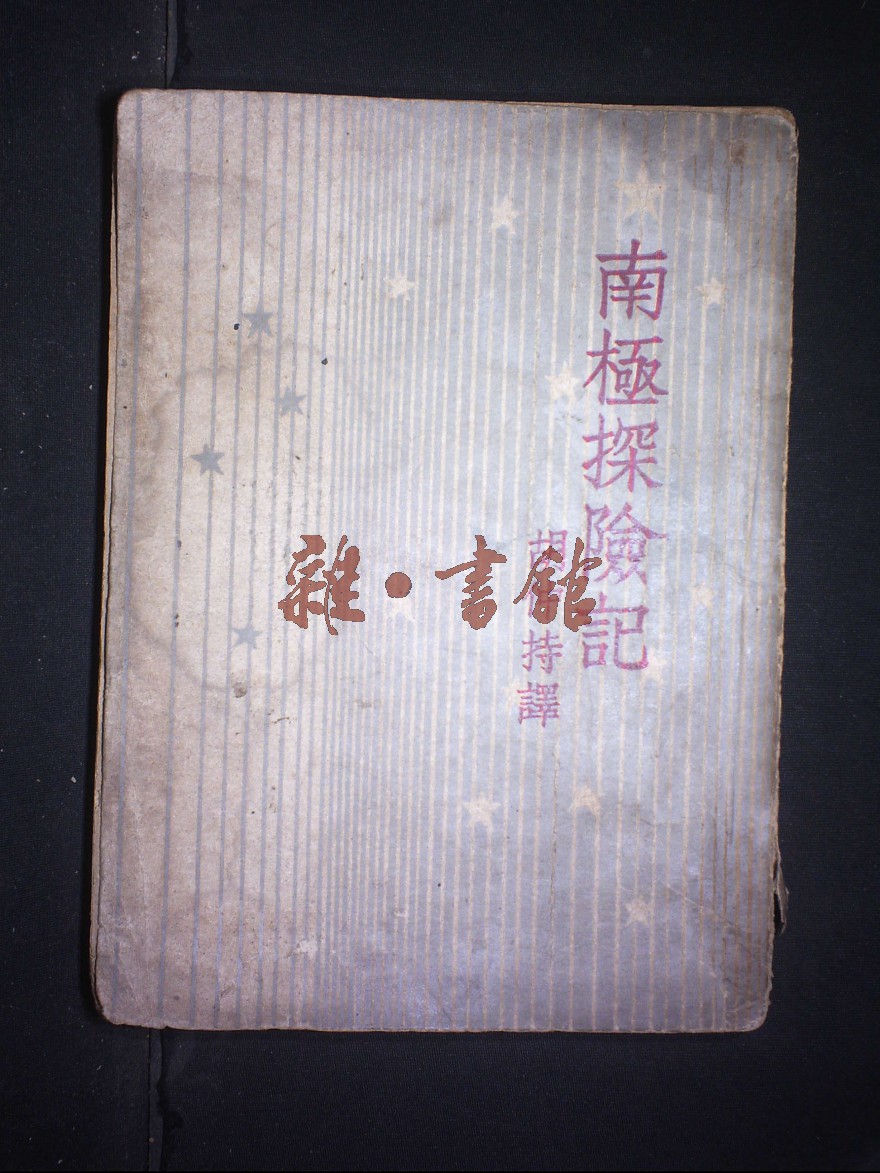 南極探險記
胡 持譯
雜·書館